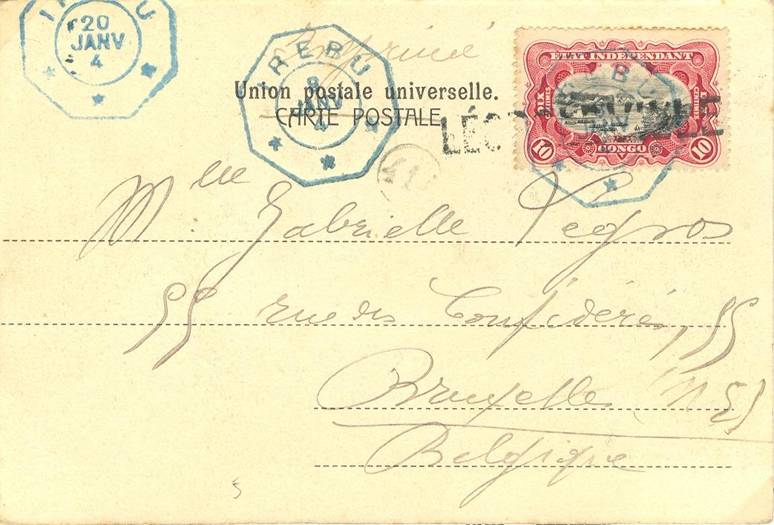 20
JANV
4
IREBU
8
JANV
4
Imprimé
Union postale universelle.
CARTE POSTALE
ETAT INDÉPENDANT
DIX CENTIMES
CONGO
10 10
LÉOPOLDVILLE
41
Mlle Gabrielle Legros
55 rue des Confédérés, 55
Bruxelles (N E)
Belgique